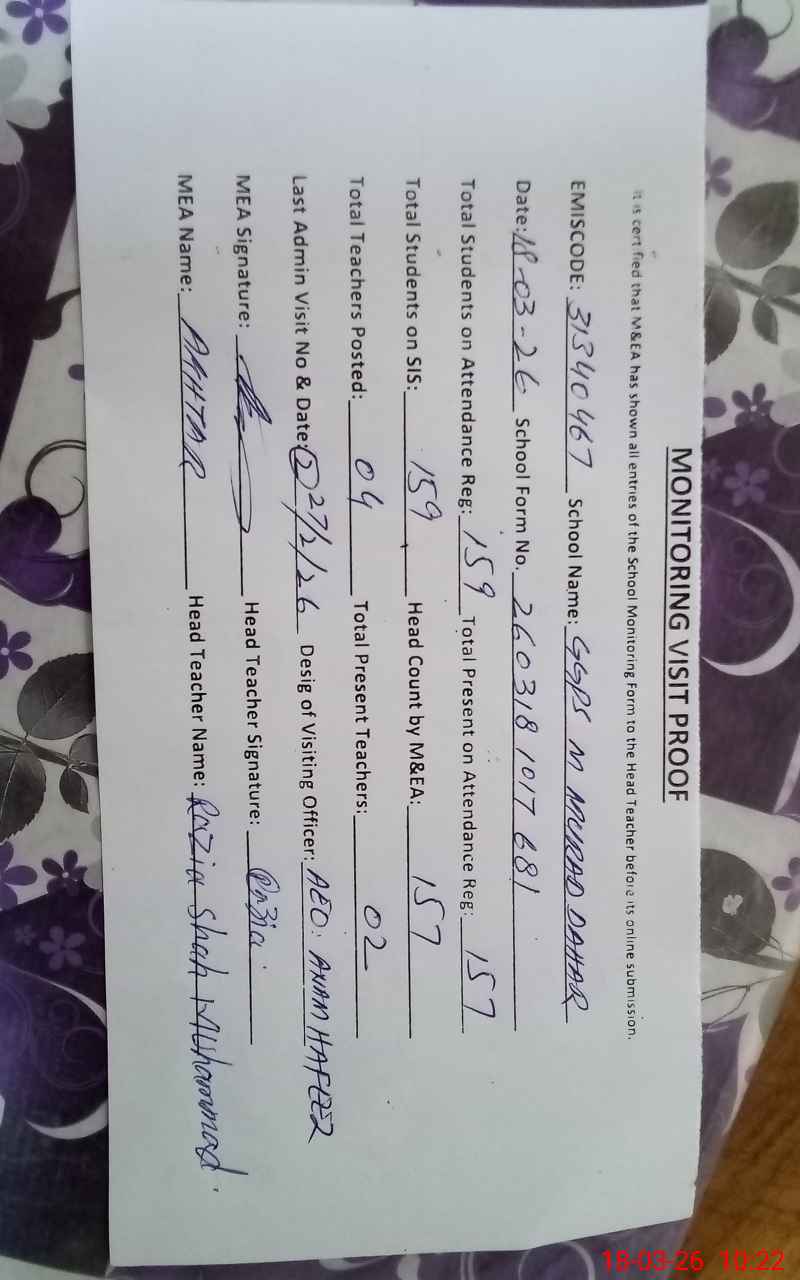 MONITORING VISIT PROOF
It is certified that M&EA has shown all entries of the School Monitoring Form to the Head Teacher before its online submission.
EMISCODE: 31340467 School Name: GGPS M MURAD DAHAR
Date: 18-03-26 School Form No. 2603181017681
Total Students on Attendance Reg: 159 Total Present on Attendance Reg: 157
Total Students on SIS: 159 Head Count by M&EA: 157
Total Teachers Posted: 04 Total Present Teachers: 02
Last Admin Visit No & Date: 2 27/2/26 Desig of Visiting Officer: AEO: ANAM HAFEEZ
MEA Signature: Head Teacher Signature: Razia
MEA Name: AKHTAR Head Teacher Name: Razia Shah Muhammad
18-03-26 10:22